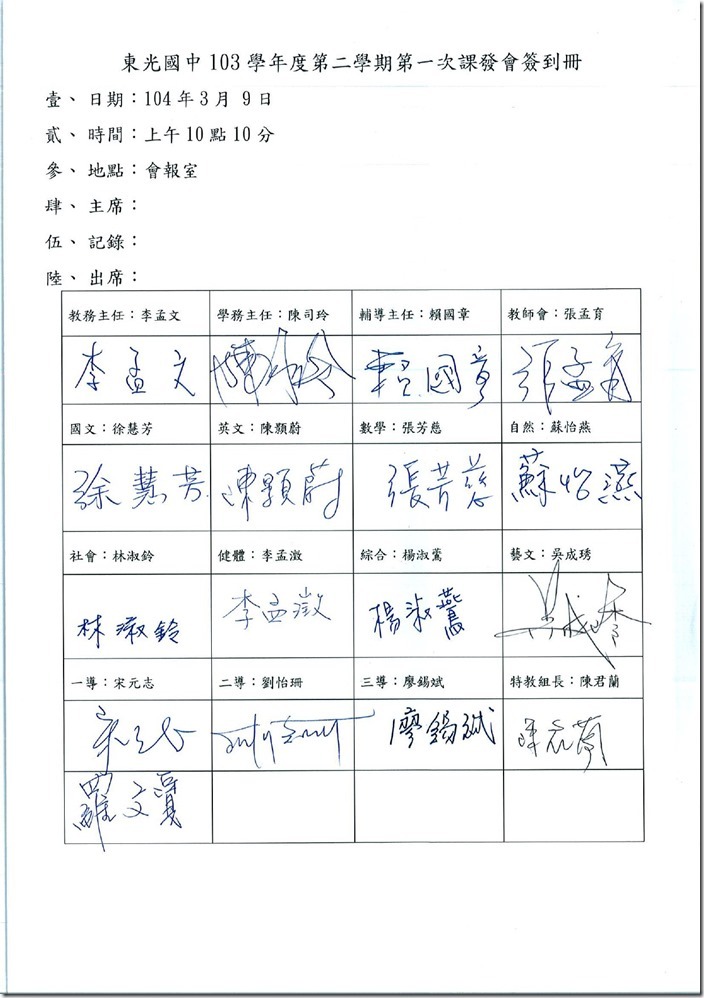 東光國中 103 學年度第二學期第一次課發會簽到冊
壹、日期：104 年 3 月 9 日
貳、時間：上午 10 點 10 分
參、地點：會報室
肆、主席：
伍、記錄：
陸、出席：
教務主任：李孟文 學務主任：陳司玲 輔導主任：賴國章 教師會：張孟育
李孟文 陳司玲 賴國章 張孟育
國文：徐慧芳 英文：陳顥蔚 數學：張芳慈 自然：蘇怡燕
徐慧芳 陳顥蔚 張芳慈 蘇怡燕
社會：林淑鈴 健體：李孟澂 綜合：楊淑鶱 藝文：吳成琇
林淑鈴 李孟澂 楊淑 吳成琇
一導：宋元志 二導：劉怡珊 三導：廖錫斌 特教組長：陳君蘭
宋元志 劉怡珊 廖錫斌 陳君蘭
羅文寶